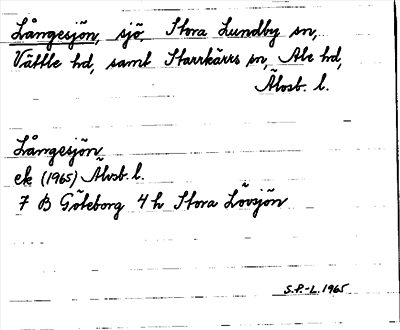 Långesjön, sjö, Stora Lundby sn,
Vättle hd, samt Starrkärrs sn, Ale hd,
Älvsb. l.
Långesjön
ek (1965) Älvsb. l.
7 B Göteborg 4 h Stora Lövsjön
S.P.-L. 1965